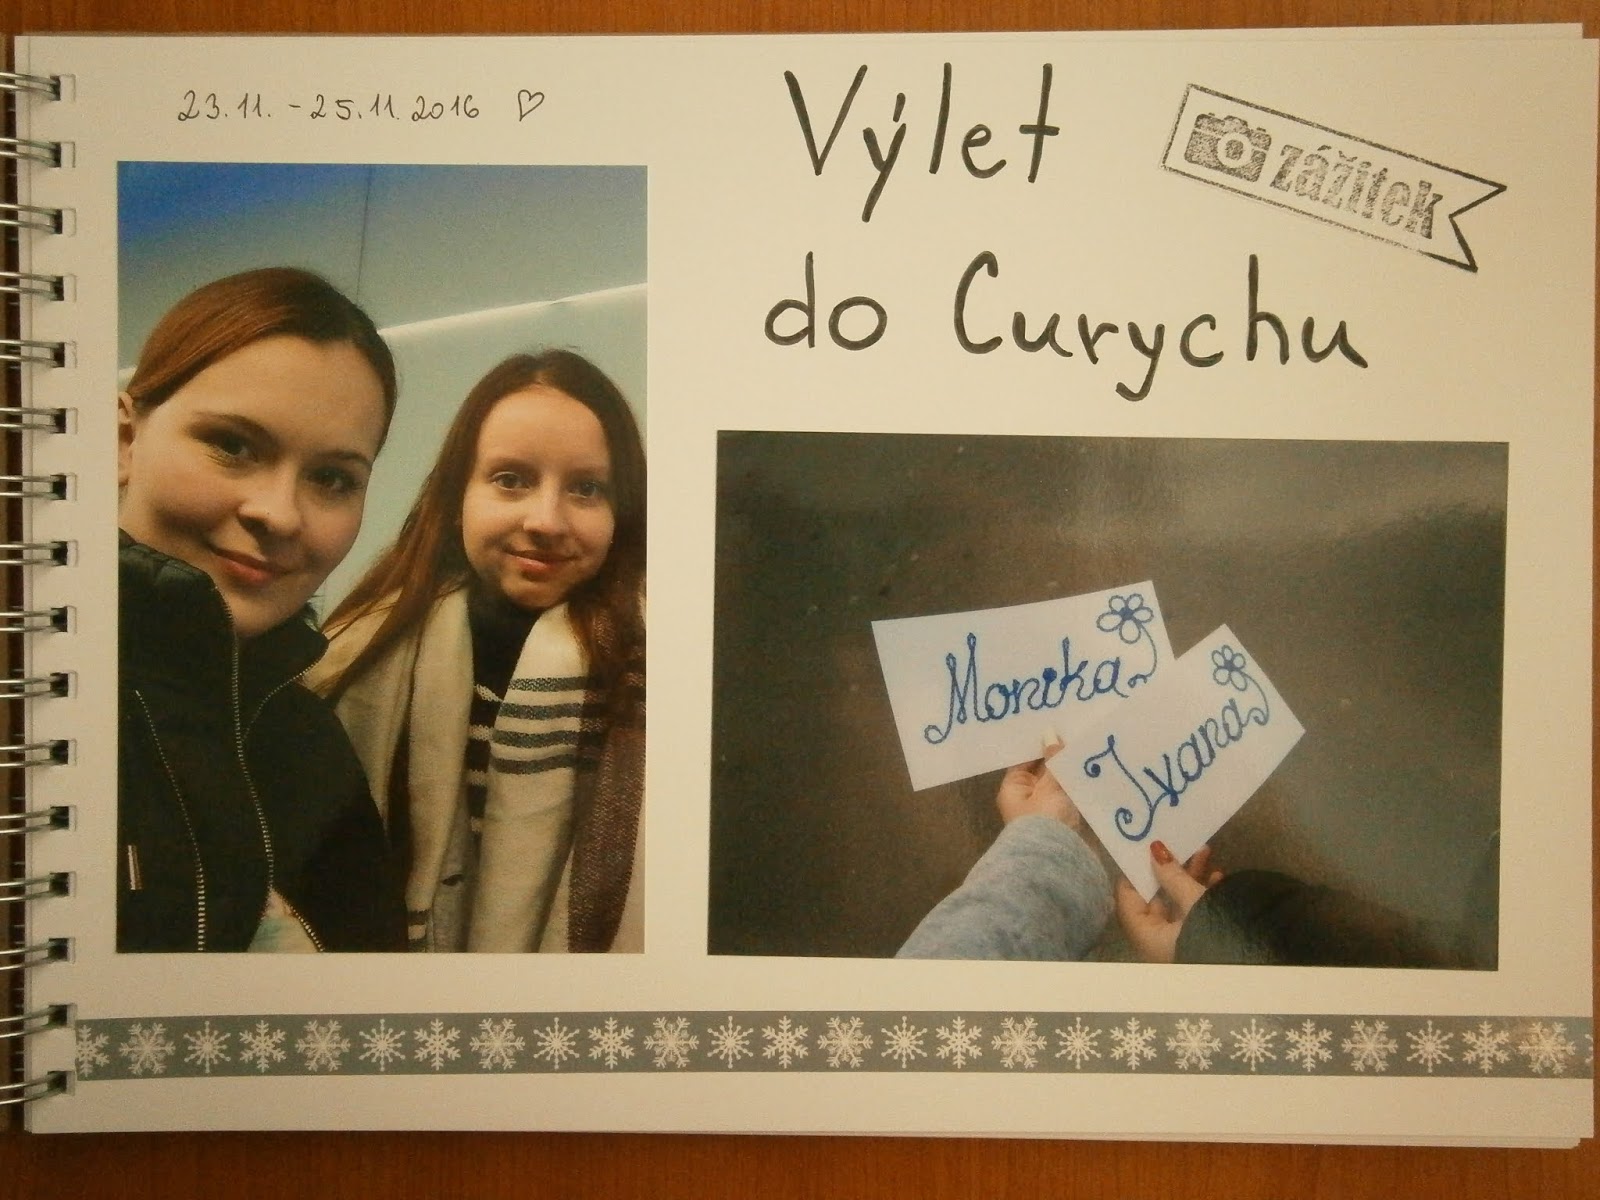 23.11. - 25.11.2016 ♡
Výlet
do Curychu
zážitek
Monika
Ivana